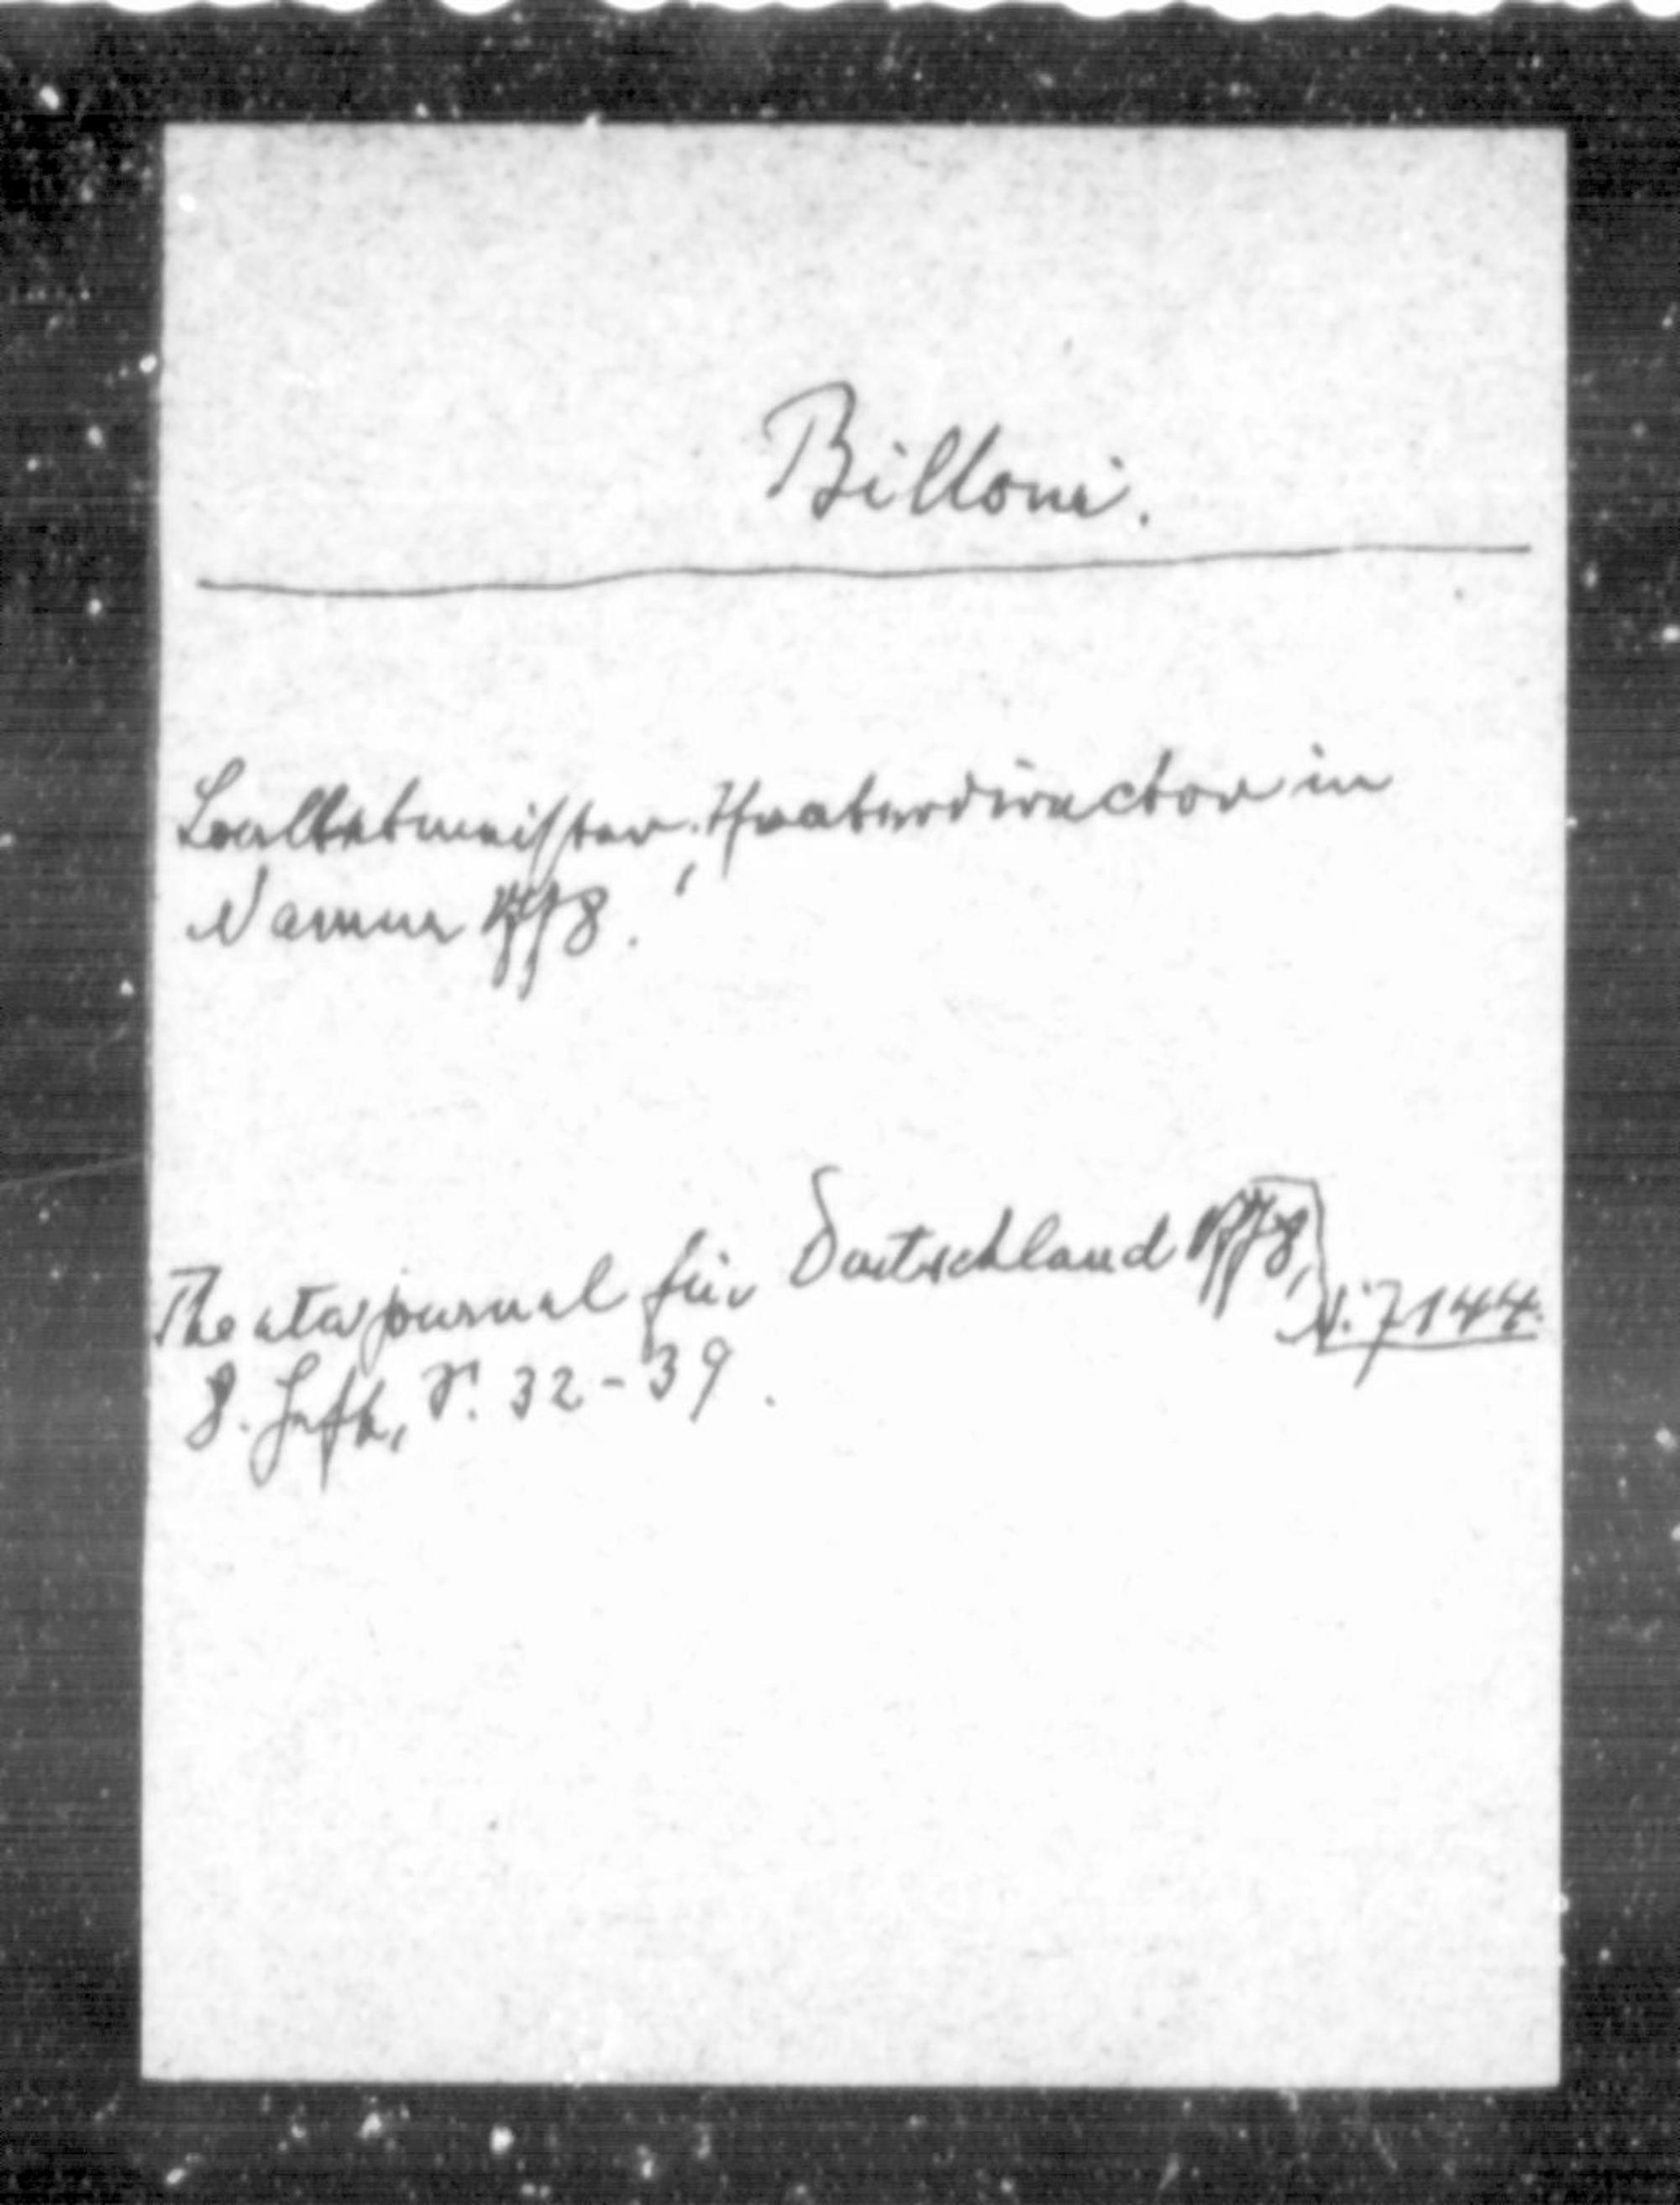 Billoni.
Balletmeister, Theaterdirector in
Namur 1778.
Theaterjournal für Deutschland 1778,
N. 7144.
8. Heft, S. 32-39.